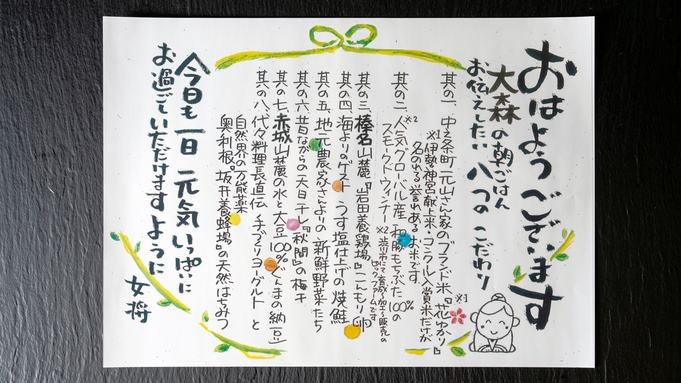 おはようございます
大森の朝ごはん
お伝えしたい 八つのこだわり
其の一、中之条町 元山さん家のブランド米『花ゆかり』※1
※1 伊勢神宮献上米・コンクール入賞米だけが
名のれる誉れあるお米です
其の二、人気グローバル産 和豚もちぶた100%の
※2 スモークドウィンナー ※2 渋川市にて育成・加工・販売の
トップファームです
其の三、榛名山麓『岩田養鶏場』こんもり卵
其の四、海よりのゲスト うす塩仕上げの焼鮭
其の五、地元農家さんよりの新鮮野菜たち
其の六、昔ながらの天日干し『秋間』の梅干
其の七、赤城山麓の水と大豆100%ぐんまの納豆
其の八、代々料理長直伝 手づくりヨーグルト と
自然界の万能薬
奥利根『坂井養蜂場』の天然はちみつ
今日も一日 元気いっぱいに
お過ごしいただけますように
女将